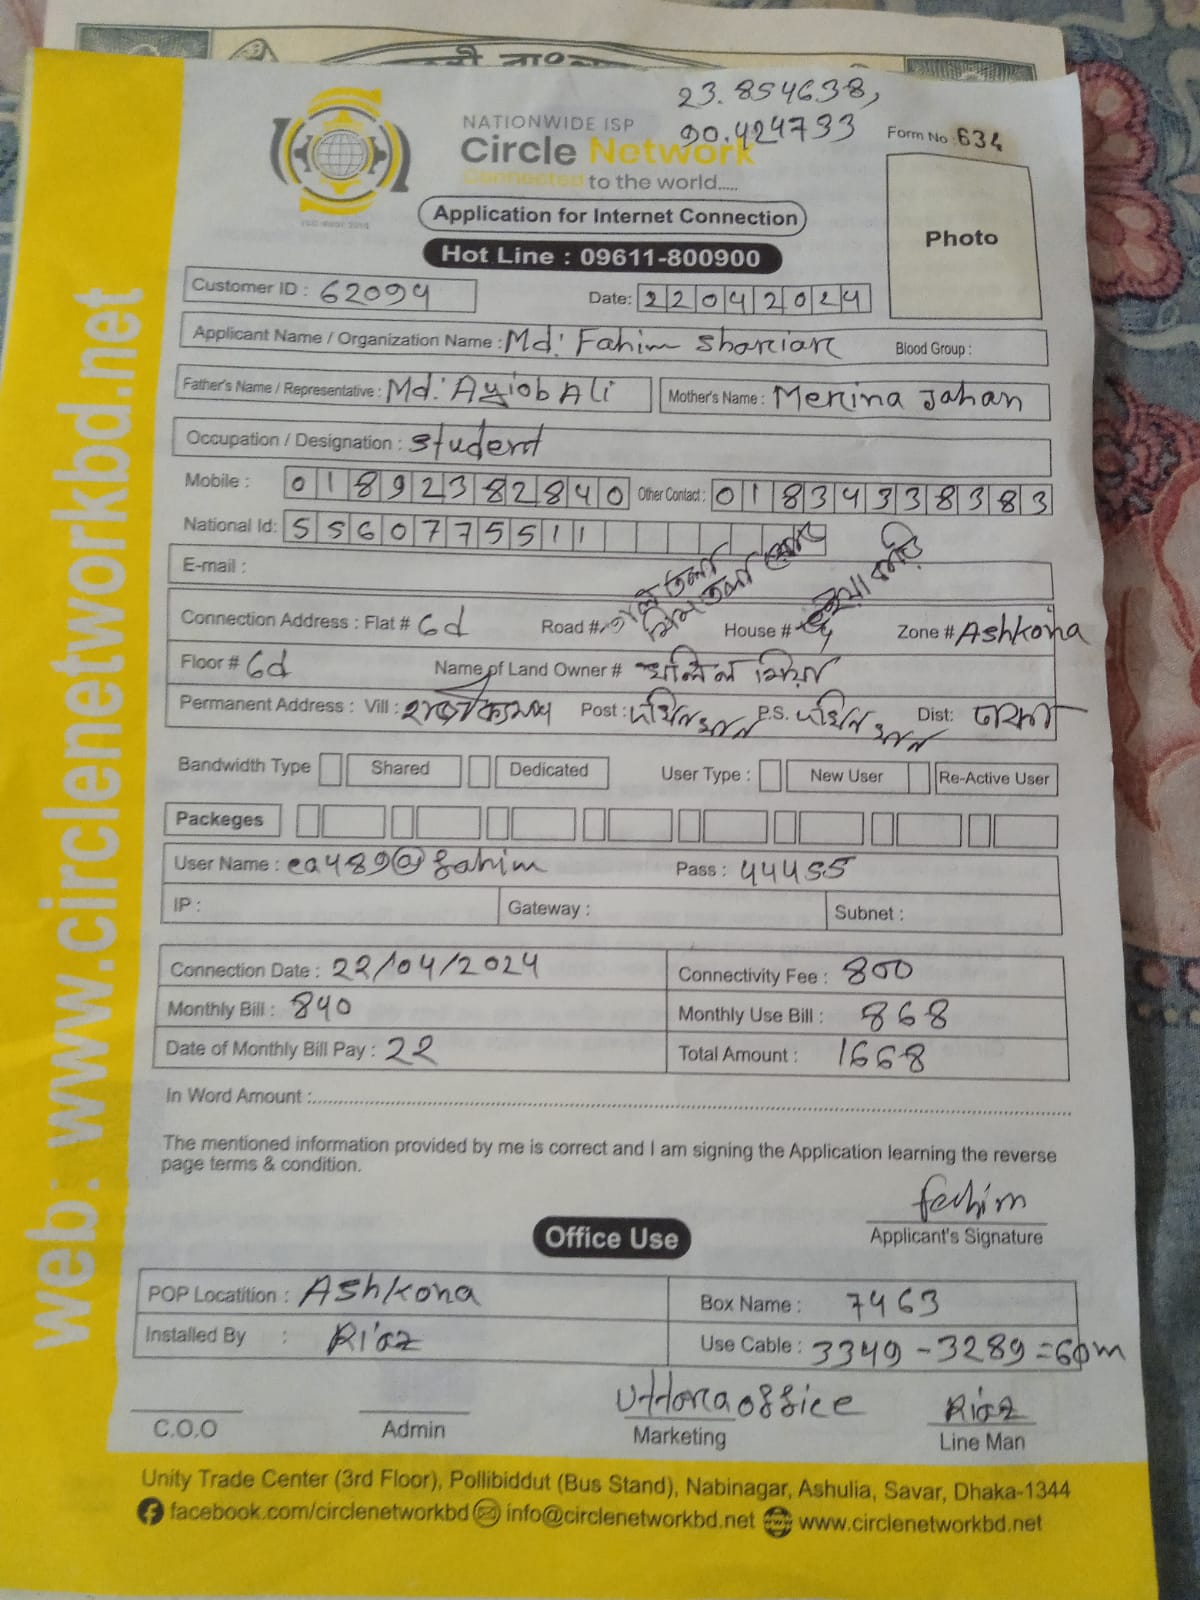 23.854638,
90.424733
NATIONWIDE ISP
Circle Network
Connected to the world.....
Form No : 634
Application for Internet Connection
Hot Line : 09611-800900
Photo
Customer ID : 62094
Date: 22042024
Applicant Name / Organization Name : Md. Fahim Shariar Blood Group :
Father's Name / Representative : Md. Ayiob Ali Mother's Name : Merina Jahan
Occupation / Designation : Student
Mobile : 01892382840 Other Contact : 01834338383
National Id: 5560775511
E-mail :
Connection Address : Flat # 6d Road # House # Zone # Ashkona
Floor # 6d Name of Land Owner # খলিল মিয়া
Permanent Address : Vill : Post : দক্ষিনখান P.S. দক্ষিনখান Dist: ঢাকা
Bandwidth Type Shared Dedicated User Type : New User Re-Active User
Packeges
User Name : ea489@fahim Pass : 44455
IP : Gateway : Subnet :
Connection Date : 22/04/2024 Connectivity Fee : 800
Monthly Bill : 840 Monthly Use Bill : 868
Date of Monthly Bill Pay : 22 Total Amount : 1668
In Word Amount :
The mentioned information provided by me is correct and I am signing the Application learning the reverse
page terms & condition.
Fahim
Applicant's Signature
Office Use
POP Locatition : Ashkona Box Name : 7463
Installed By : Riaz Use Cable : 3349 - 3289 = 60m
Uttora office Riaz
C.O.O Admin Marketing Line Man
Unity Trade Center (3rd Floor), Pollibiddut (Bus Stand), Nabinagar, Ashulia, Savar, Dhaka-1344
facebook.com/circlenetworkbd info@circlenetworkbd.net www.circlenetworkbd.net
web: www.circlenetworkbd.net